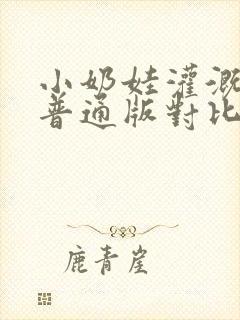 小奶娃灌溉
普通版對比
鹿青崖